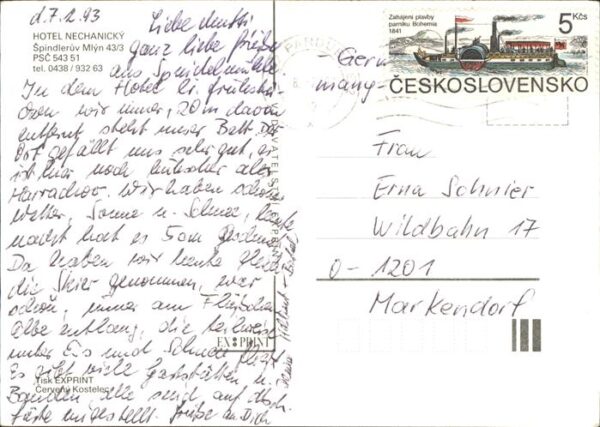 d. 7.2.93
HOTEL NECHANICKÝ
Špindlerův Mlýn 43/3
PSČ 543 51
tel. 0438 / 932 63
Liebe Mutti
ganz liebe Grüße
aus Spindelmühle.
In dem Hotel
wir immer, 20m davon
entfernt steht unser Bett. Der
Ort gefällt uns sehr gut, es
ist hier noch hübscher als
Harrachov. Wir haben schönes
Wetter, Sonne u. Schnee, heute
nacht hat es 5cm
Da haben wir heute
die Skier genommen, war
schön, immer am
Elbe entlang, die teilweise
unter Eis und Schnee fließt
Es gibt viele Gaststätten u.
Bauden, alle sind auf
eingestellt. Grüße an Dich
Tisk EXPRINT
Červený Kostelec
EXPRINT
Zahájení plavby
parníku Bohemia
1841
5 Kčs
ČESKOSLOVENSKO
Germany
Frau
Erna Schnier
Wildbahn 17
O-1201
Markendorf